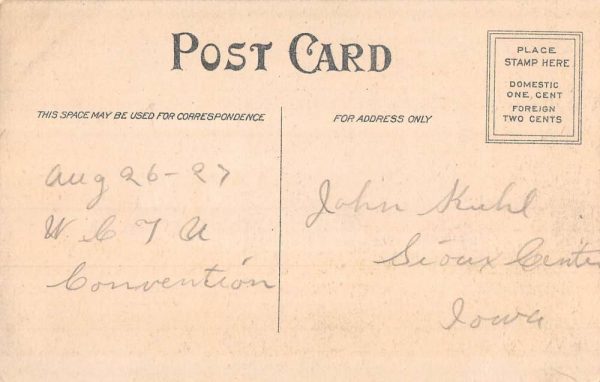 POST CARD
PLACE
STAMP HERE
DOMESTIC
ONE CENT
FOREIGN
TWO CENTS
THIS SPACE MAY BE USED FOR CORRESPONDENCE
FOR ADDRESS ONLY
Aug 26-27
W C T U
Convention
John Kuhl
Sioux Cente
Iowa